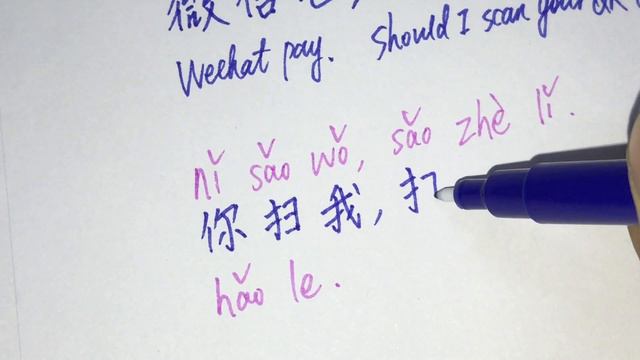 微信
Wechat pay. Should I scan your QR
nǐ sǎo wǒ, sǎo zhè lǐ.
你 扫 我,
hǎo le.